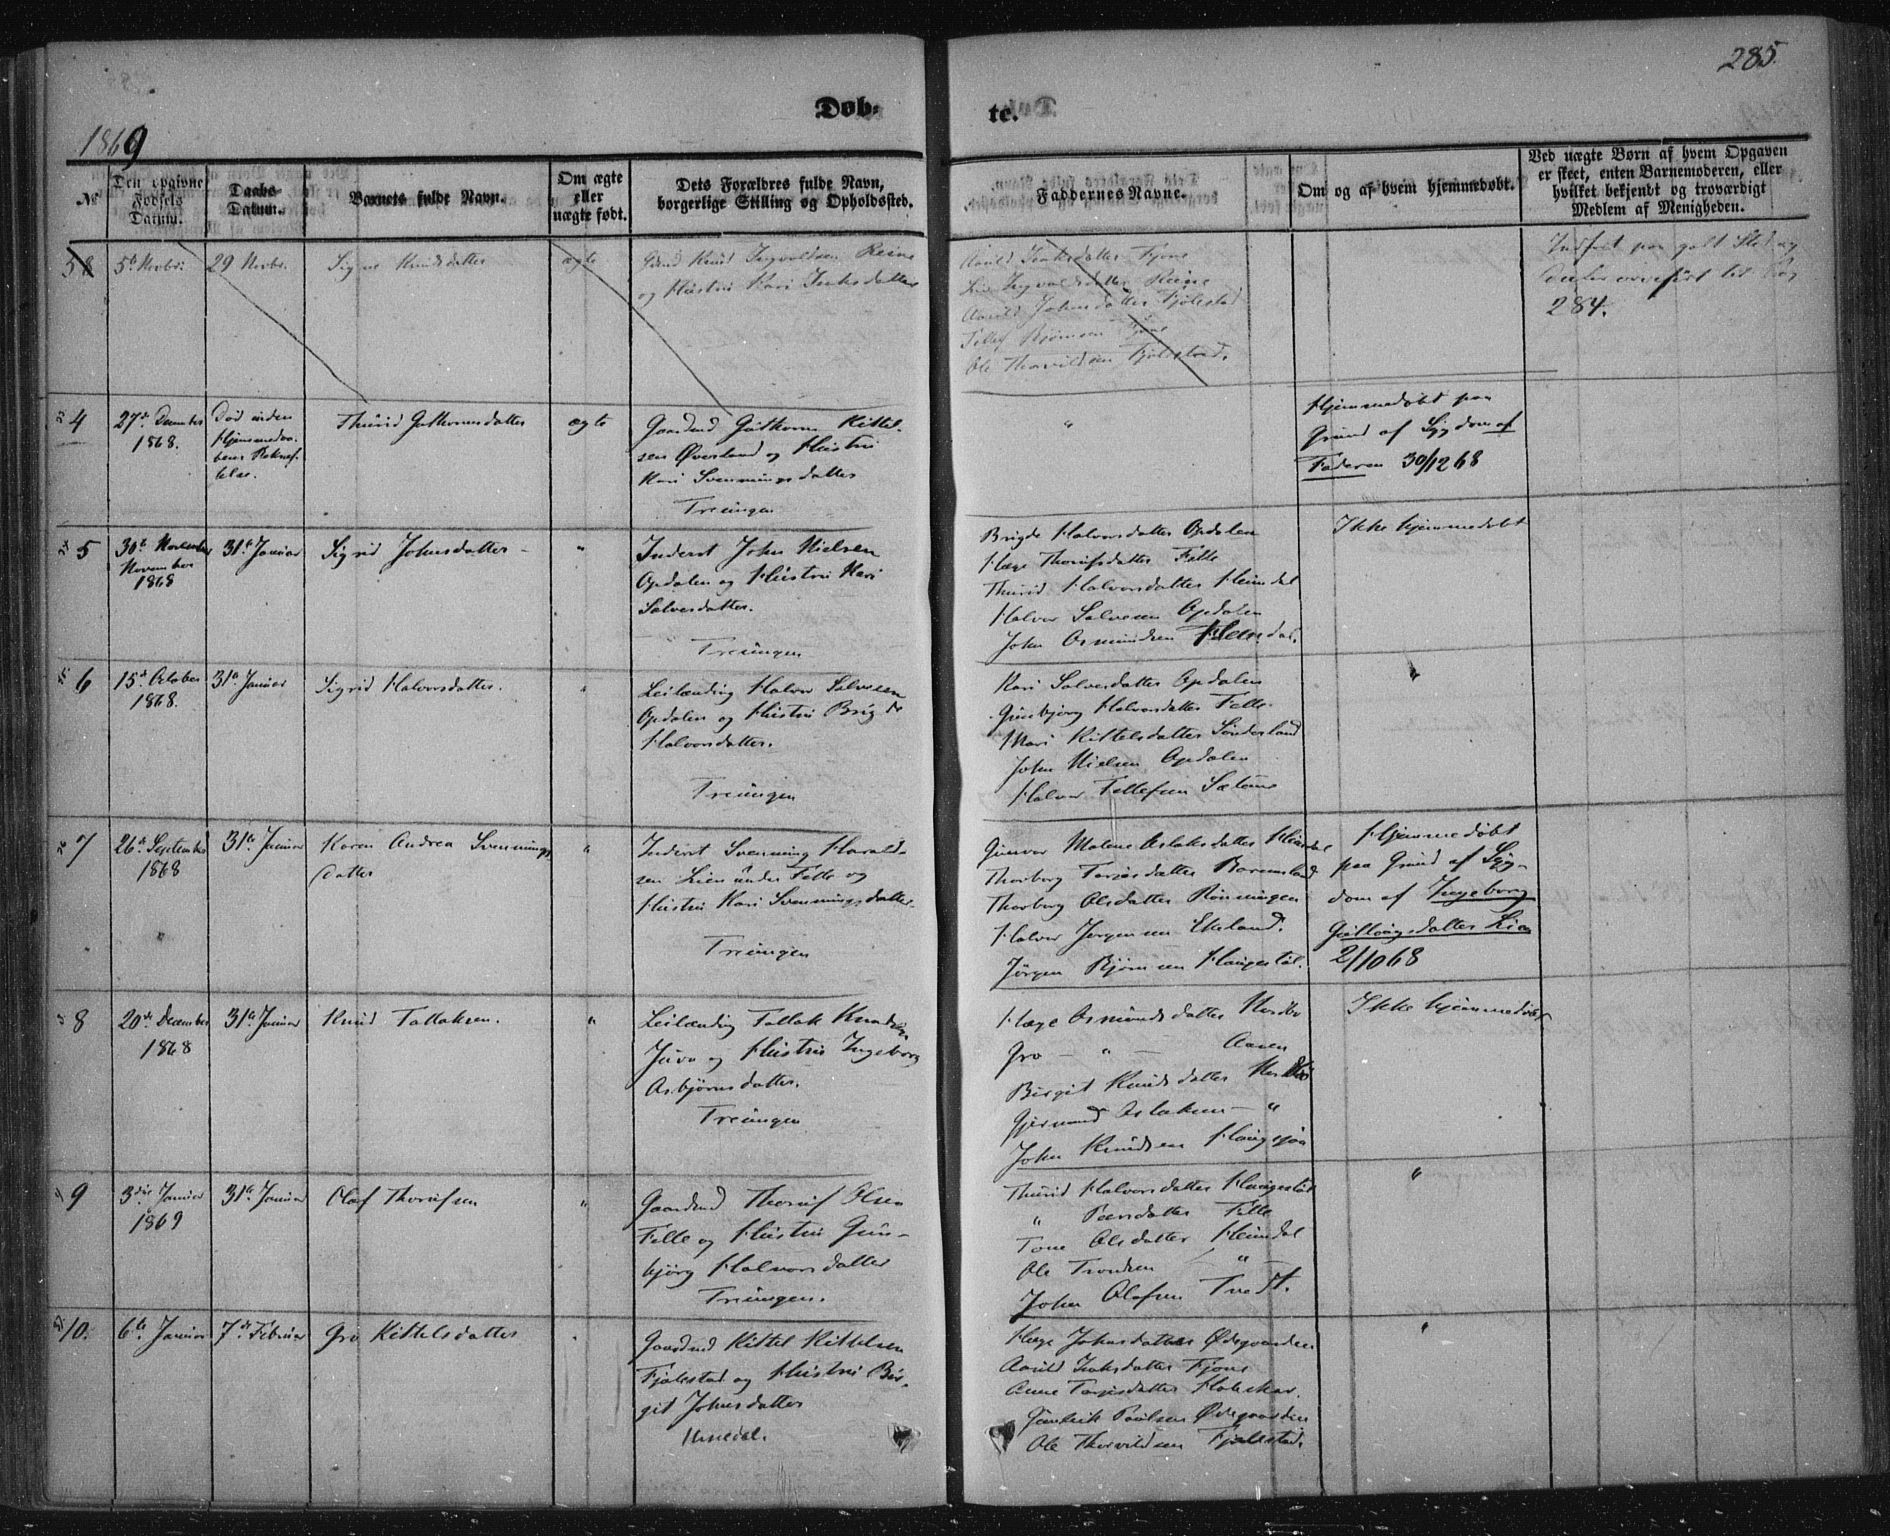 285.
Døb-
te.
1869
No
Den opgivne Fødsels Datum.
Daabs Datum.
Barnets fulde Navn.
Om ægte eller uægte født.
Dets Forældres fulde Navn, borgerlige Stilling og Opholdssted.
Faddernes Navne.
Om og af hvem hjemmedøbt.
Ved uægte Børn af hvem Opgaven er skeet, enten Barnemoderen, eller hvilket bekjendt og troværdigt Medlem af Menigheden.
58
5te Novbr.
29 Novbr.
Signe Knudsdatter
ægte
Gbrd Knud Ingvoldsen Reine
og Hustru Kari Isaksdatter
Aarild Isaksdatter Fjone
Liv Ingvoldsdatter Reine
Aarild Johnsdatter Fjølestad
Tellef Bjørnsen Fjone
Ole Thorvildsen Fjølestad.
Indført paa galt Sted og
overført til Pag
284.
4
27de December
1868.
Død inden
Hjemmedaa-
bens Bekræf-
telse.
Thurid Guthormsdatter
ægte
Gaardmd Guthorm Kittel-
sen Øverland og Hustru
Kari Svenningsdatter
Treungen
"
Hjemmedøbt paa
Grund af Sygdom af
Faderen 30/12 68
5
30te November
November
1868
31te Januar
Sigrid Johnsdatter -
"
Inderst John Nielsen
Opdalen og Hustru Kari
Salvesdatter.
Treungen
Brigde Halvorsdatter Opdalen
Hæge Thorufsdatter Felle
Thurid Halvorsdatter Heimdal
Halvor Salvesen Opdalen
John Osmundsen Heimdal.
Ikke hjemmedøbt
6
15de October
1868.
31te Januar
Sigrid Halvorsdatter.
"
Leilænding Halvor Salvesen
Opdalen og Hustru Brigde
Halvorsdatter.
Treungen
Kari Salvesdatter Opdalen
Gunbjørg Halvorsdatter Felle
Mari Kittelsdatter Sønderland
John Nielsen Opdalen
Halvor Tellefsen
"
7
26de September
1868
31te Januar
Karen Andrea Svennings
datter
"
Inderst Svenning Harald-
sen Lien under Felle og
Hustru Kari Svenningsdatter.
Treungen
Gunvor Malene Aslaksdatter Heimdal
Thorborg Tarjesdatter
Thorborg Olsdatter Rønningen
Halvor Jørgensen Ekeland.
Jørgen Bjørnsen Haugestøl.
Hjemmedøbt
paa Grund af Syg-
dom af Ingeborg
Gulleigsdatter Lien
2/10 68
8
20de December
1868
31te Januar
Knud Tallaksen.
"
Leilænding Tallak Knudsen
Juva og Hustru Ingeborg
Asbjørnsdatter.
Treungen
Hæge Osmundsdatter Nesbø
Gro - " - Aasen
Birgit Knudsdatter
Gjermund Aslaksen - "
John Knudsen Haugsjaa
Ikke hjemmedøbt
9
3die Januar
1869
31te Januar
Olaf Thorufsen
"
Gaardmd Thoruf Olsen
Felle og Hustru Gun-
bjørg Halvorsdatter
Treungen.
Thurid Halvorsdatter Haugestøl
" Pærsdatter Felle
Tone Olsdatter Heimdal
Ole Trondsen "
John Olafsen Tvedt.
"
10.
6te Januar
7de Februar
Gro Kittelsdatter
Gaardmd Kittel Kittelsen
Fjølestad og Hustru Bir-
git Johnsdatter
Nissedal.
Hæge Johnsdatter Ødegaarden
Aarild Isaksdatter Fjone
Anne Tarjesdatter Haleskar.
Paulsen Ødegaarden
Ole Thorvildsen Fjølestad.
"